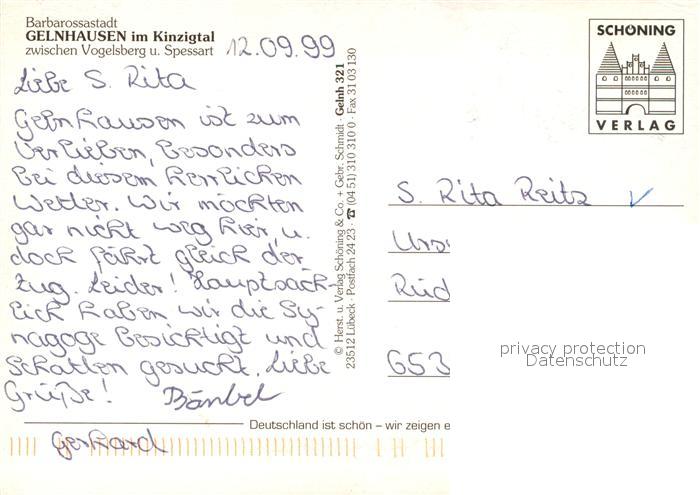 Barbarossastadt
GELNHAUSEN im Kinzigtal
zwischen Vogelsberg u. Spessart
12.09.99
Liebe S. Rita
Gelnhausen ist zum
Verlieben, besonders
bei diesem herrlichen
Wetter. Wir möchten
gar nicht weg hier, u.
doch fährt gleich der
Zug. Leider! Hauptsäch-
lich haben wir die Sy-
nagoge besichtigt und
Schatten gesucht. Liebe
Grüße! Bärbel
Gerhard
© Herst. u. Verlag Schöning & Co. + Gebr. Schmidt · Gelnh 321
23512 Lübeck · Postfach 24 23 · ☎ (04 51) 310 310 0 · Fax 31 03 130
SCHÖNING
VERLAG
S. Rita Reitz
Urs
Rüd
653
privacy protection
Datenschutz
Deutschland ist schön – wir zeigen e